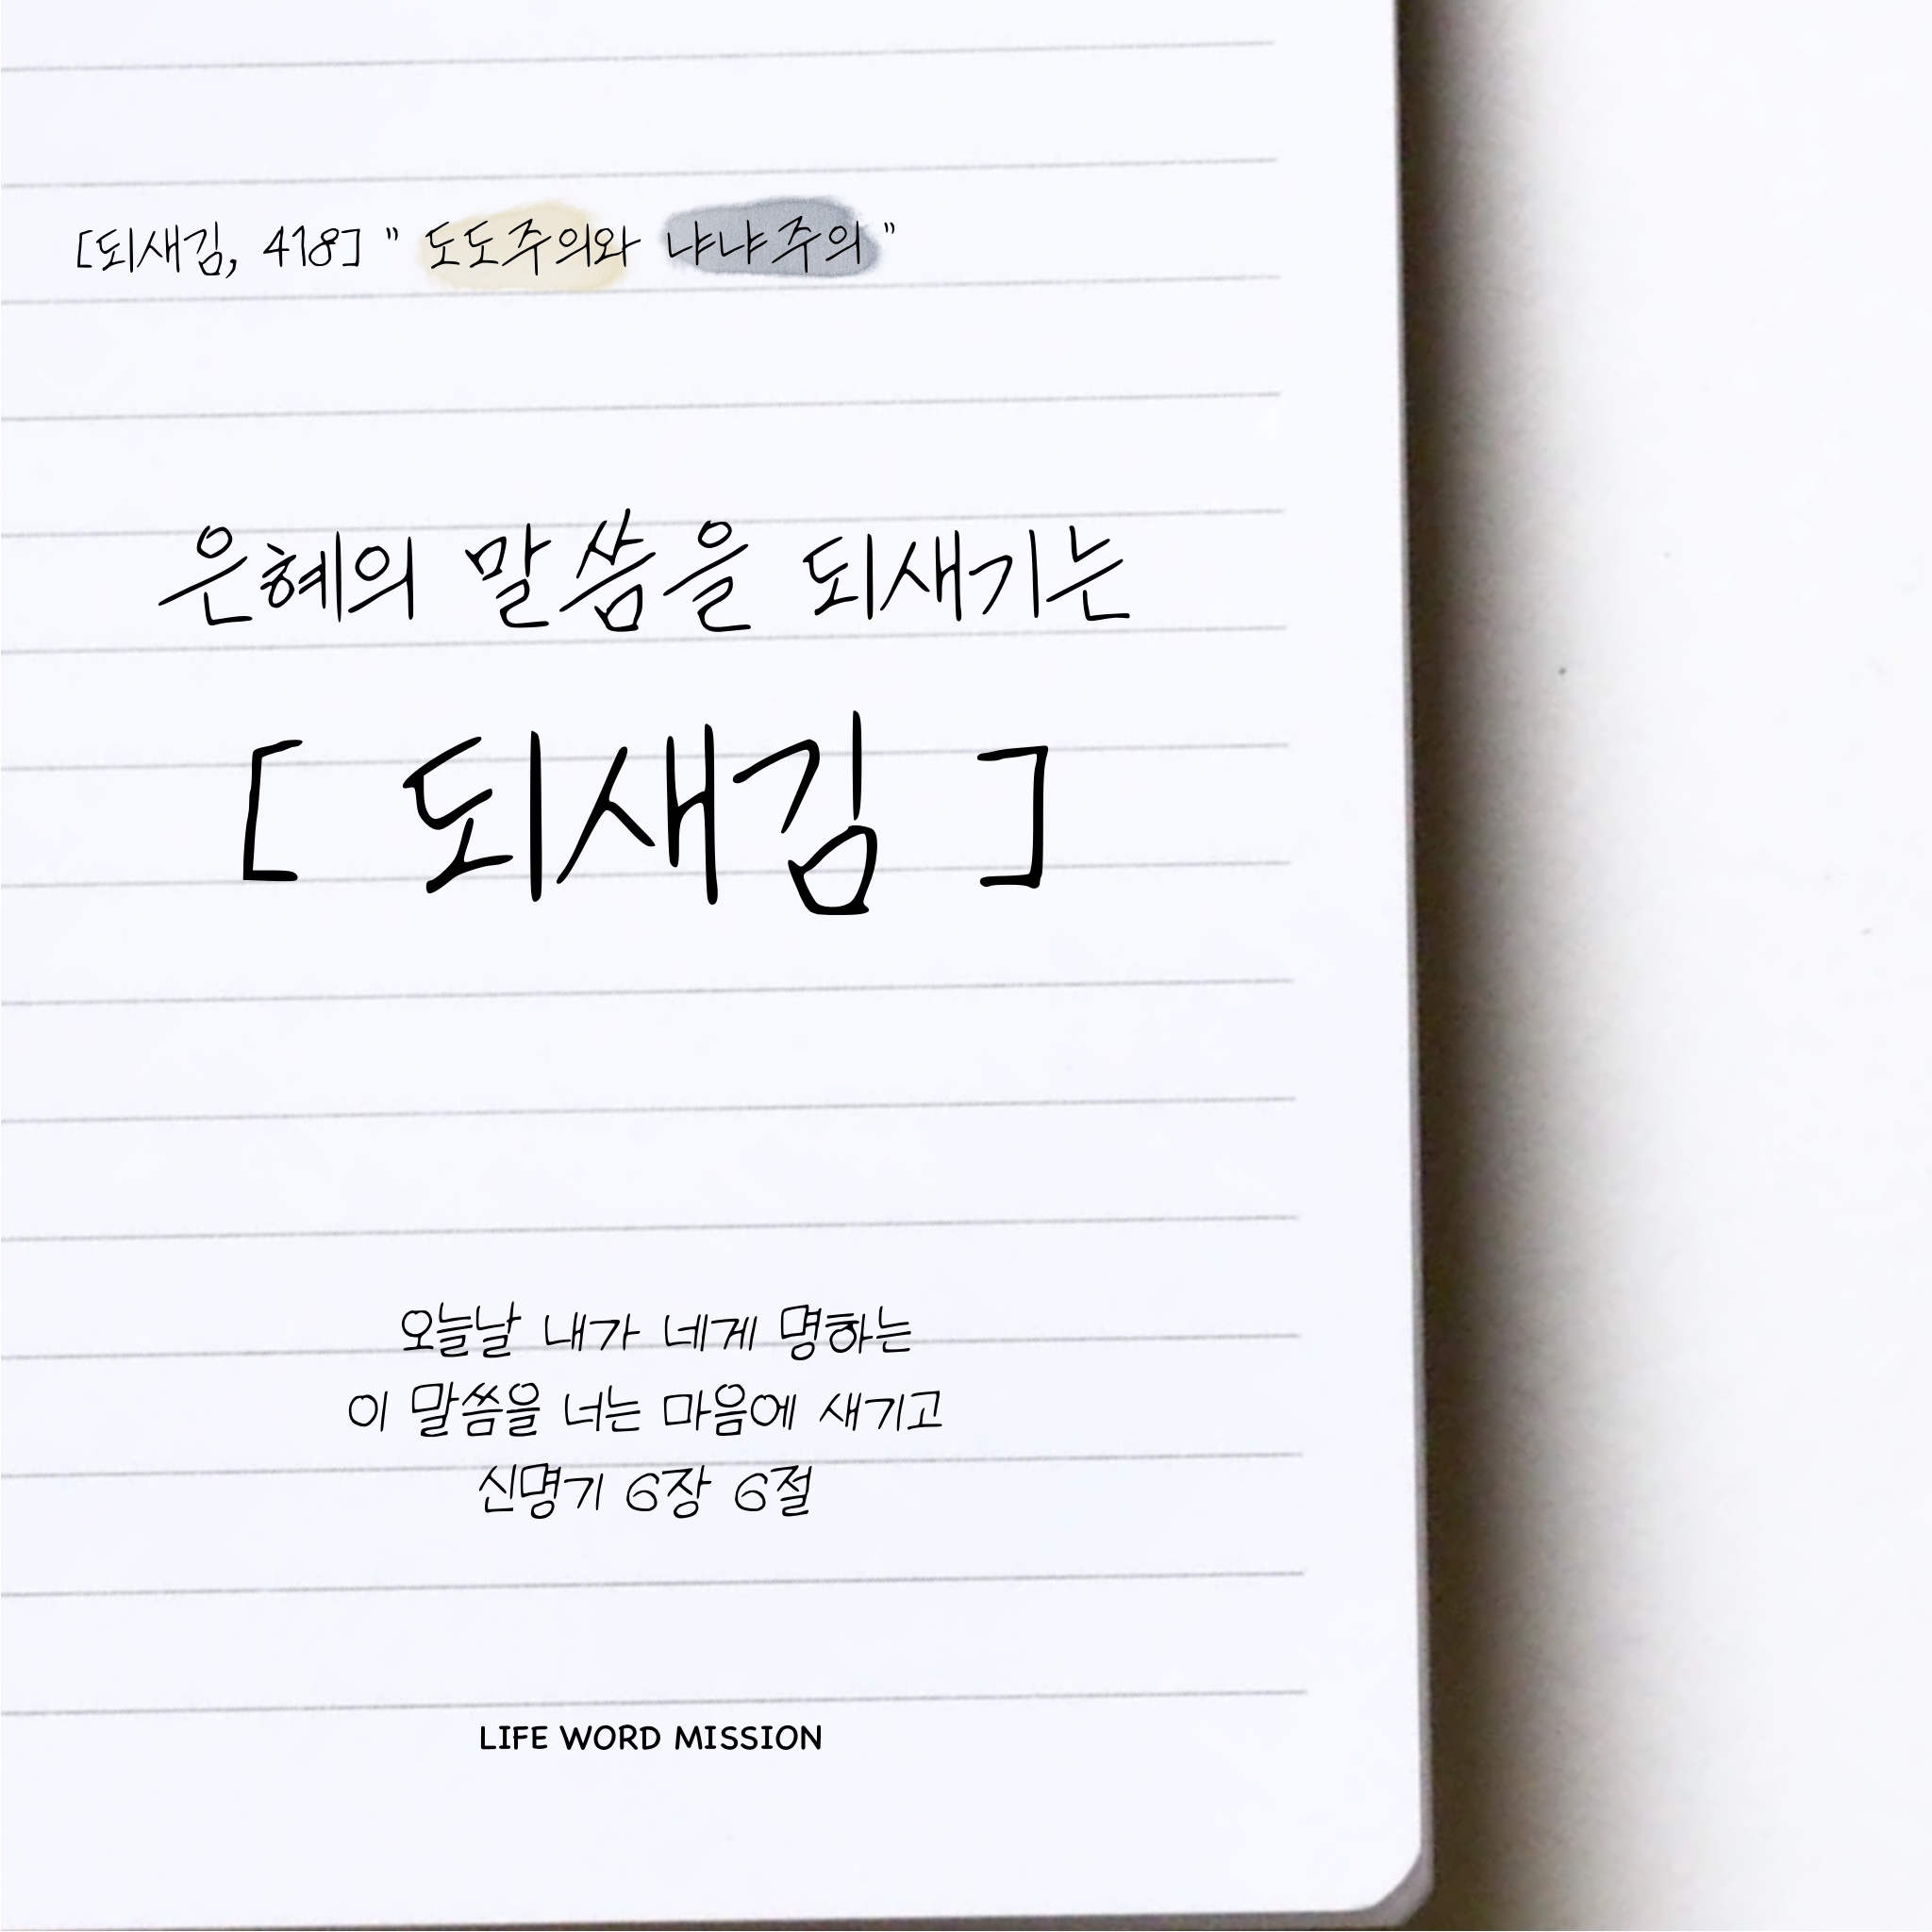 [되새김, 418] " 도도주의와 냐냐주의 "
은혜의 말씀을 되새기는
[ 되새김 ]
오늘날 내가 네게 명하는
이 말씀을 너는 마음에 새기고
신명기 6장 6절
LIFE WORD MISSION